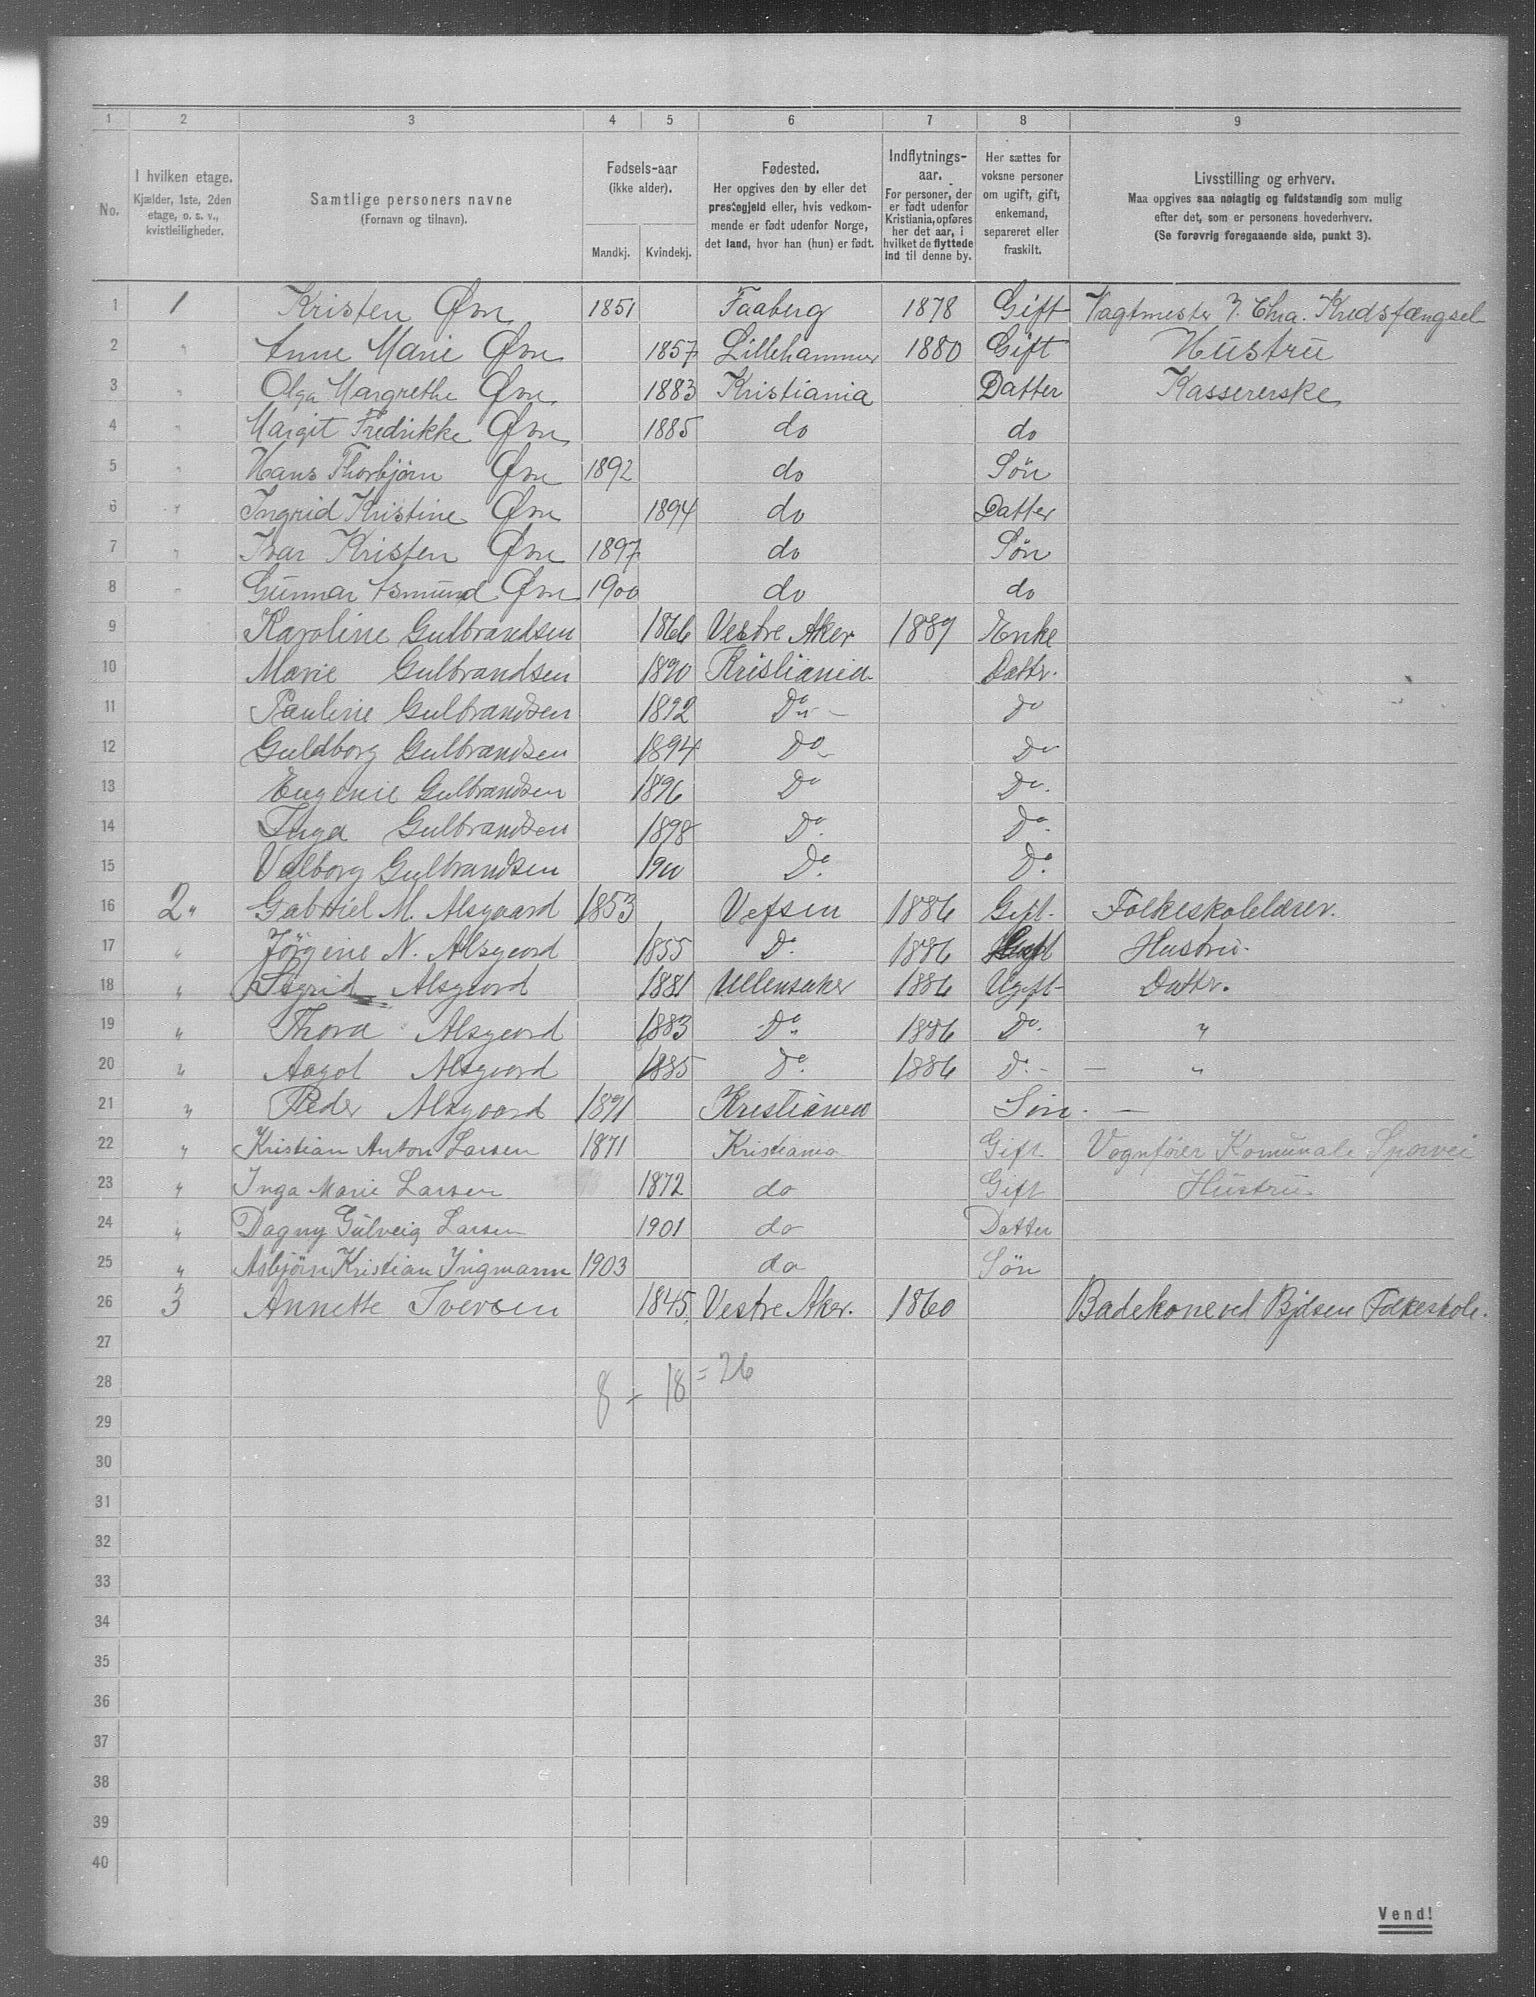 1 2 3 4 5 6 7 8 9
No.
I hvilken etage.
Kjælder, 1ste, 2den
etage, o. s. v.,
kvistleiligheder.
Samtlige personers navne
(Fornavn og tilnavn).
Fødsels-aar
(ikke alder).
Mandkj. Kvindekj.
Fødested.
Her opgives den by eller det
prestegjeld eller, hvis vedkom-
mende er født udenfor Norge,
det land, hvor han (hun) er født.
Indflytnings-
aar.
For personer, der
er født udenfor
Kristiania, opføres
her det aar, i
hvilket de flyttede
ind til denne by.
Her sættes for
voksne personer
om ugift, gift,
enkemand,
separeret eller
fraskilt.
Livsstilling og erhverv.
Maa opgives saa nøiagtig og fuldstændig som mulig
efter det, som er personens hovederhverv.
(Se forøvrig foregaaende side, punkt 3).
1 1 Kristen Øvre 1851 Faaberg 1878 Gift Vagtmester v. Chra. Kredsfængsel
2 " Anne Marie Øvre 1857 Lillehammer 1880 Gift Hustru
3 " Olga Margrethe Øvre 1883 Kristiania Datter Kassererske
4 " Margit Fredrikke Øvre 1885 do do
5 " Hans Thorbjørn Øvre 1892 do Søn
6 " Ingrid Kristine Øvre 1894 do Datter
7 " Ivar Kristen Øvre 1897 do Søn
8 " Gunnar Asmund Øvre 1900 do do
9 Karoline Gulbrandsen 1866 Vestre Aker 1889 Enke
10 Marie Gulbrandsen 1890 Kristiania Dattr.
11 Pauline Gulbrandsen 1892 Do " - do
12 Guldborg Gulbrandsen 1894 Do Do
13 Eugenie Gulbrandsen 1896 Do Do.
14 Inga Gulbrandsen 1898 Do. Do.
15 Valborg Gulbrandsen 1900 Do. Do.
16 2 " Gabriel M. Alsgaard 1853 Vefsen 1886 Gift. Folkeskolelærer.
17 " Jørgine N. Alsgaard 1855 Do. 1886 Hustru.
18 " Sigrid Alsgaard 1881 Ullensaker 1886 Ugift Dattr.
19 " Thora Alsgaard 1883 Do. 1886 Do. "
20 " Aagot Alsgaard 1885 Do. 1886 Do. - - "
21 " Peder Alsgaard 1891 Kristiania Søn. -
22 " Kristian Anton Larsen 1871 Kristiania Gift Vognfører Komunale Sporvei
23 " Inga Marie Larsen 1872 do Gift Hustru
24 " Dagny Gulveig Larsen 1901 do Datter
25 " Asbjørn Kristian Ingmann 1903 do Søn
26 3 Annette Iversen 1845 Vestre Aker. 1860 Badekone ved Bjølsen Folkeskole.
27
28 8 - 18 = 26
29
30
31
32
33
34
35
36
37
38
39
40
Vend!